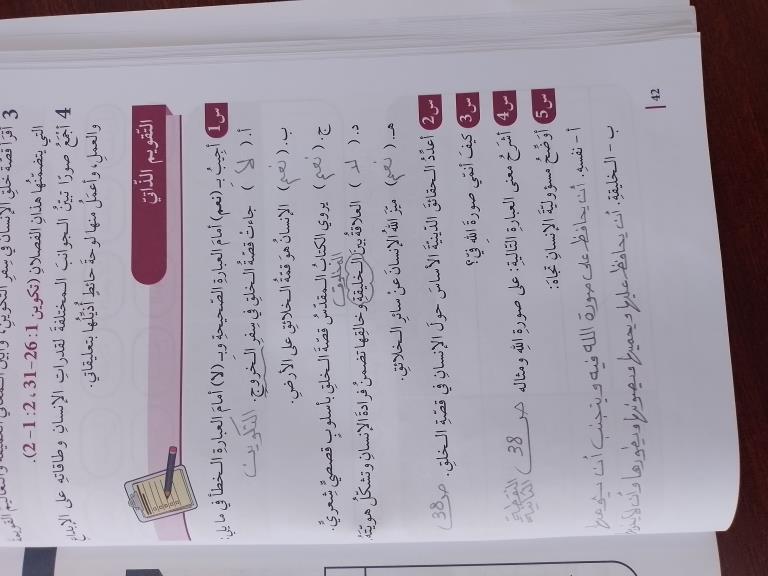 3 أقرأ قصّة خلق الإنسان في سفر التكوين،
التي يتضمّنها هذان الفصلان (تكوين 1: 26-31، 2: 1-2).
4 أجمعُ صورًا تبيّنُ الجوانبَ المختلفةَ لقدراتِ الإنسانِ وطاقاتِه على الإبداعِ
والعملِ، وأعملُ منها لوحةَ حائطٍ أذيّلُها بتعليقاتي.
التقويم الذّاتيّ
س1 أجيبُ بـ (نعم) أمامَ العبارةِ الصّحيحةِ وبـ (لا) أمامَ العبارةِ الخطأ في ما يلي:
أ. ( لا ) جاءتْ قصّةُ الخلقِ في سفرِ الخروجِ.
التكوين
ب. ( نعم ) الإنسانُ هو قمّةُ الخلائقِ على الأرضِ.
ج. ( نعم ) يروي الكتابُ المقدّسُ قصّةَ الخلقِ بأسلوبٍ قصصيٍّ شِعريٍّ.
المخلوق
د. ( لا ) العلاقةُ بينَ الخليقةِ وخالقِها تضمنُ فرادةَ الإنسانِ وتشكّلُ هويّتَهُ.
هـ. ( نعم ) ميّزَ اللهُ الإنسانَ عن سائرِ الخلائقِ.
س2 أعدّدُ الحقائقَ الدّينيّةَ الأساسَ حولَ الإنسانِ في قصّةِ الخلقِ. ص38
س3 كيفَ أنمّي صورةَ اللهِ فيَّ؟
س4 أشرحُ معنى العبارةِ التاليةِ: على صورةِ اللهِ ومثاله ص 38 النقطة الثانية
س5 أوضّحُ مسؤوليّةَ الإنسانِ تجاهَ:
أ- نفسِهِ. أن يحافظ على صورة الله فيه ويتجنب أن يشوهها
ب- الخليقةِ. أن يحافظ عليها ويحميها ويصونها ويطورها وأن لا
42